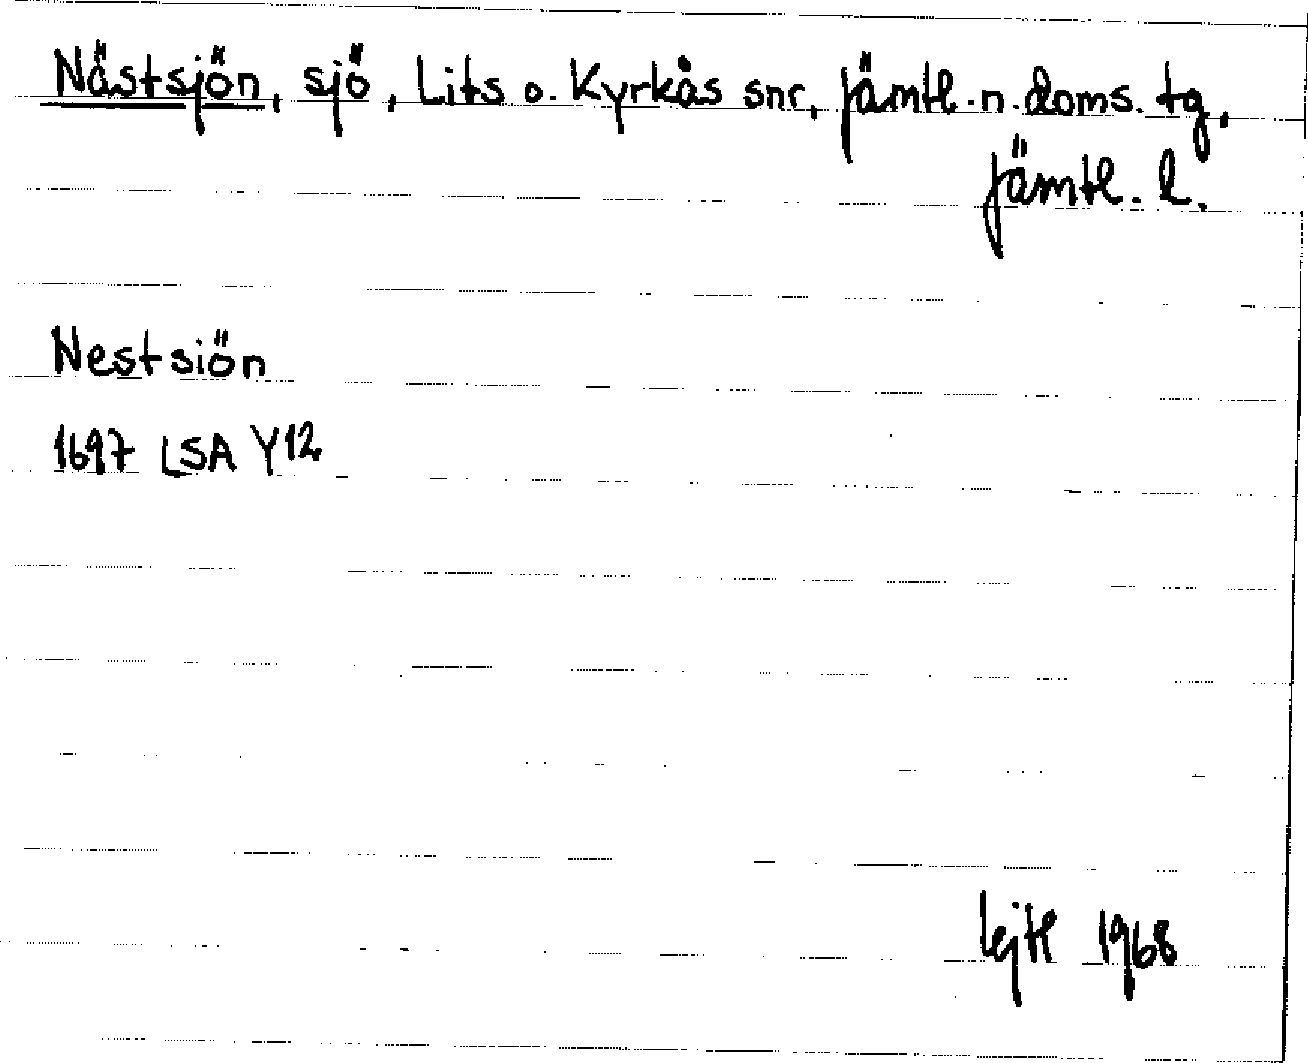 Nästsjön, sjö, Lits o. Kyrkås snr, Jämtl. n. doms. tg,
Jämtl. l.
Nestsiön
1697 LSA Y12
1968